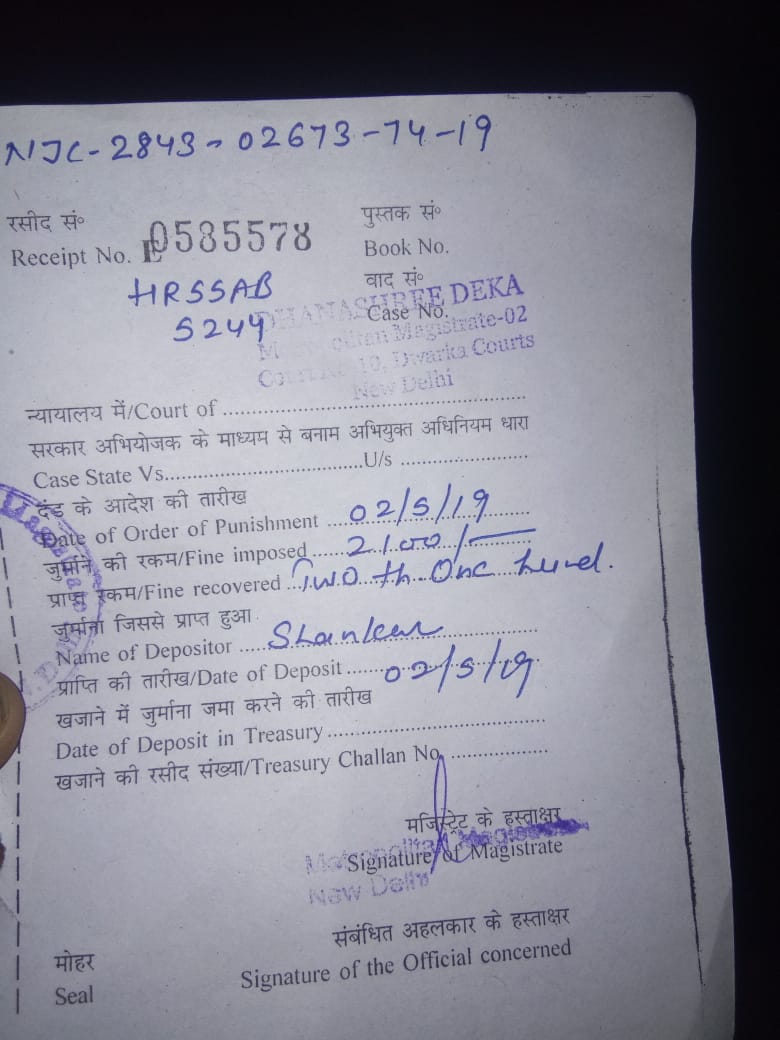 NJC-2843-02673-74-19
रसीद सं० पुस्तक सं०
Receipt No. E0585578 Book No.
वाद सं०
HRSSAB Case No.
5244 DHANASHREE DEKA
Metropolitan Magistrate-02
Court No. 10, Dwarka Courts
New Delhi
न्यायालय में/Court of ............
सरकार अभियोजक के माध्यम से बनाम अभियुक्त अधिनियम धारा
Case State Vs............U/s ............
दंड के आदेश की तारीख
Date of Order of Punishment 02/5/19
जुर्माने की रकम/Fine imposed 2100/-
प्राप्त रकम/Fine recovered Two th One hund.
जुर्माना जिससे प्राप्त हुआ
Name of Depositor Shanker
प्राप्ति की तारीख/Date of Deposit 02/5/19
खजाने में जुर्माना जमा करने की तारीख
Date of Deposit in Treasury ............
खजाने की रसीद संख्या/Treasury Challan No. ............
मजिस्ट्रेट के हस्ताक्षर
Metropolitan Magistrate
Signature of Magistrate
New Delhi
संबंधित अहलकार के हस्ताक्षर
मोहर Signature of the Official concerned
Seal